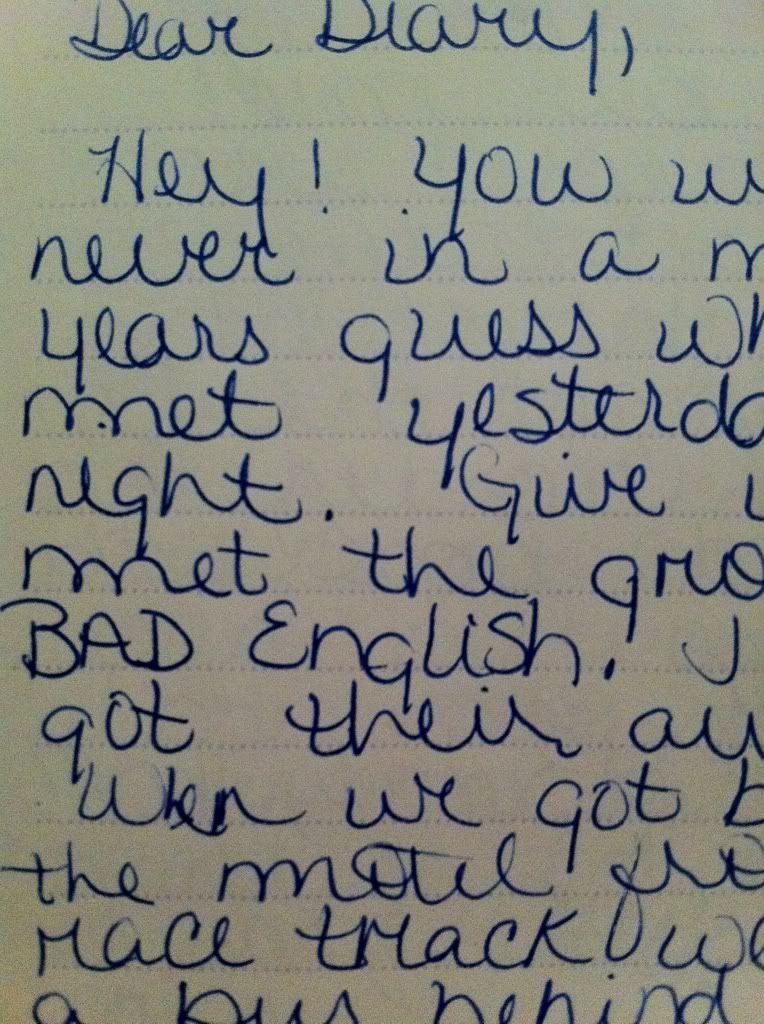 Dear Diary,
Hey! You w
never in a m
years guess wh
met yesterda
night. Give u
met the gro
BAD English. I
got their au
When we got b
the motel fro
race track we
a bus behind